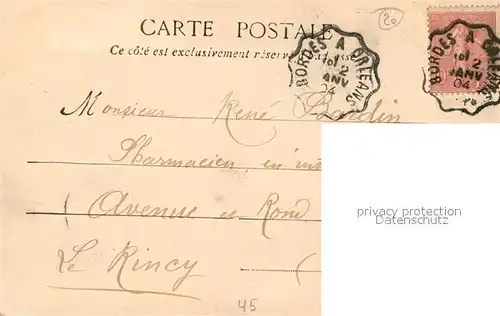 CARTE POSTALE
20
Ce côté est exclusivement réservé à l'adresse
BORDES A ORLEANS
101
2
JANV
04
BORDES A ORLEANS
101
2
JANV
04
Monsieur René
Pharmacien, en
Avenue et Rond
Le Rincy
45
privacy protection
Datenschutz